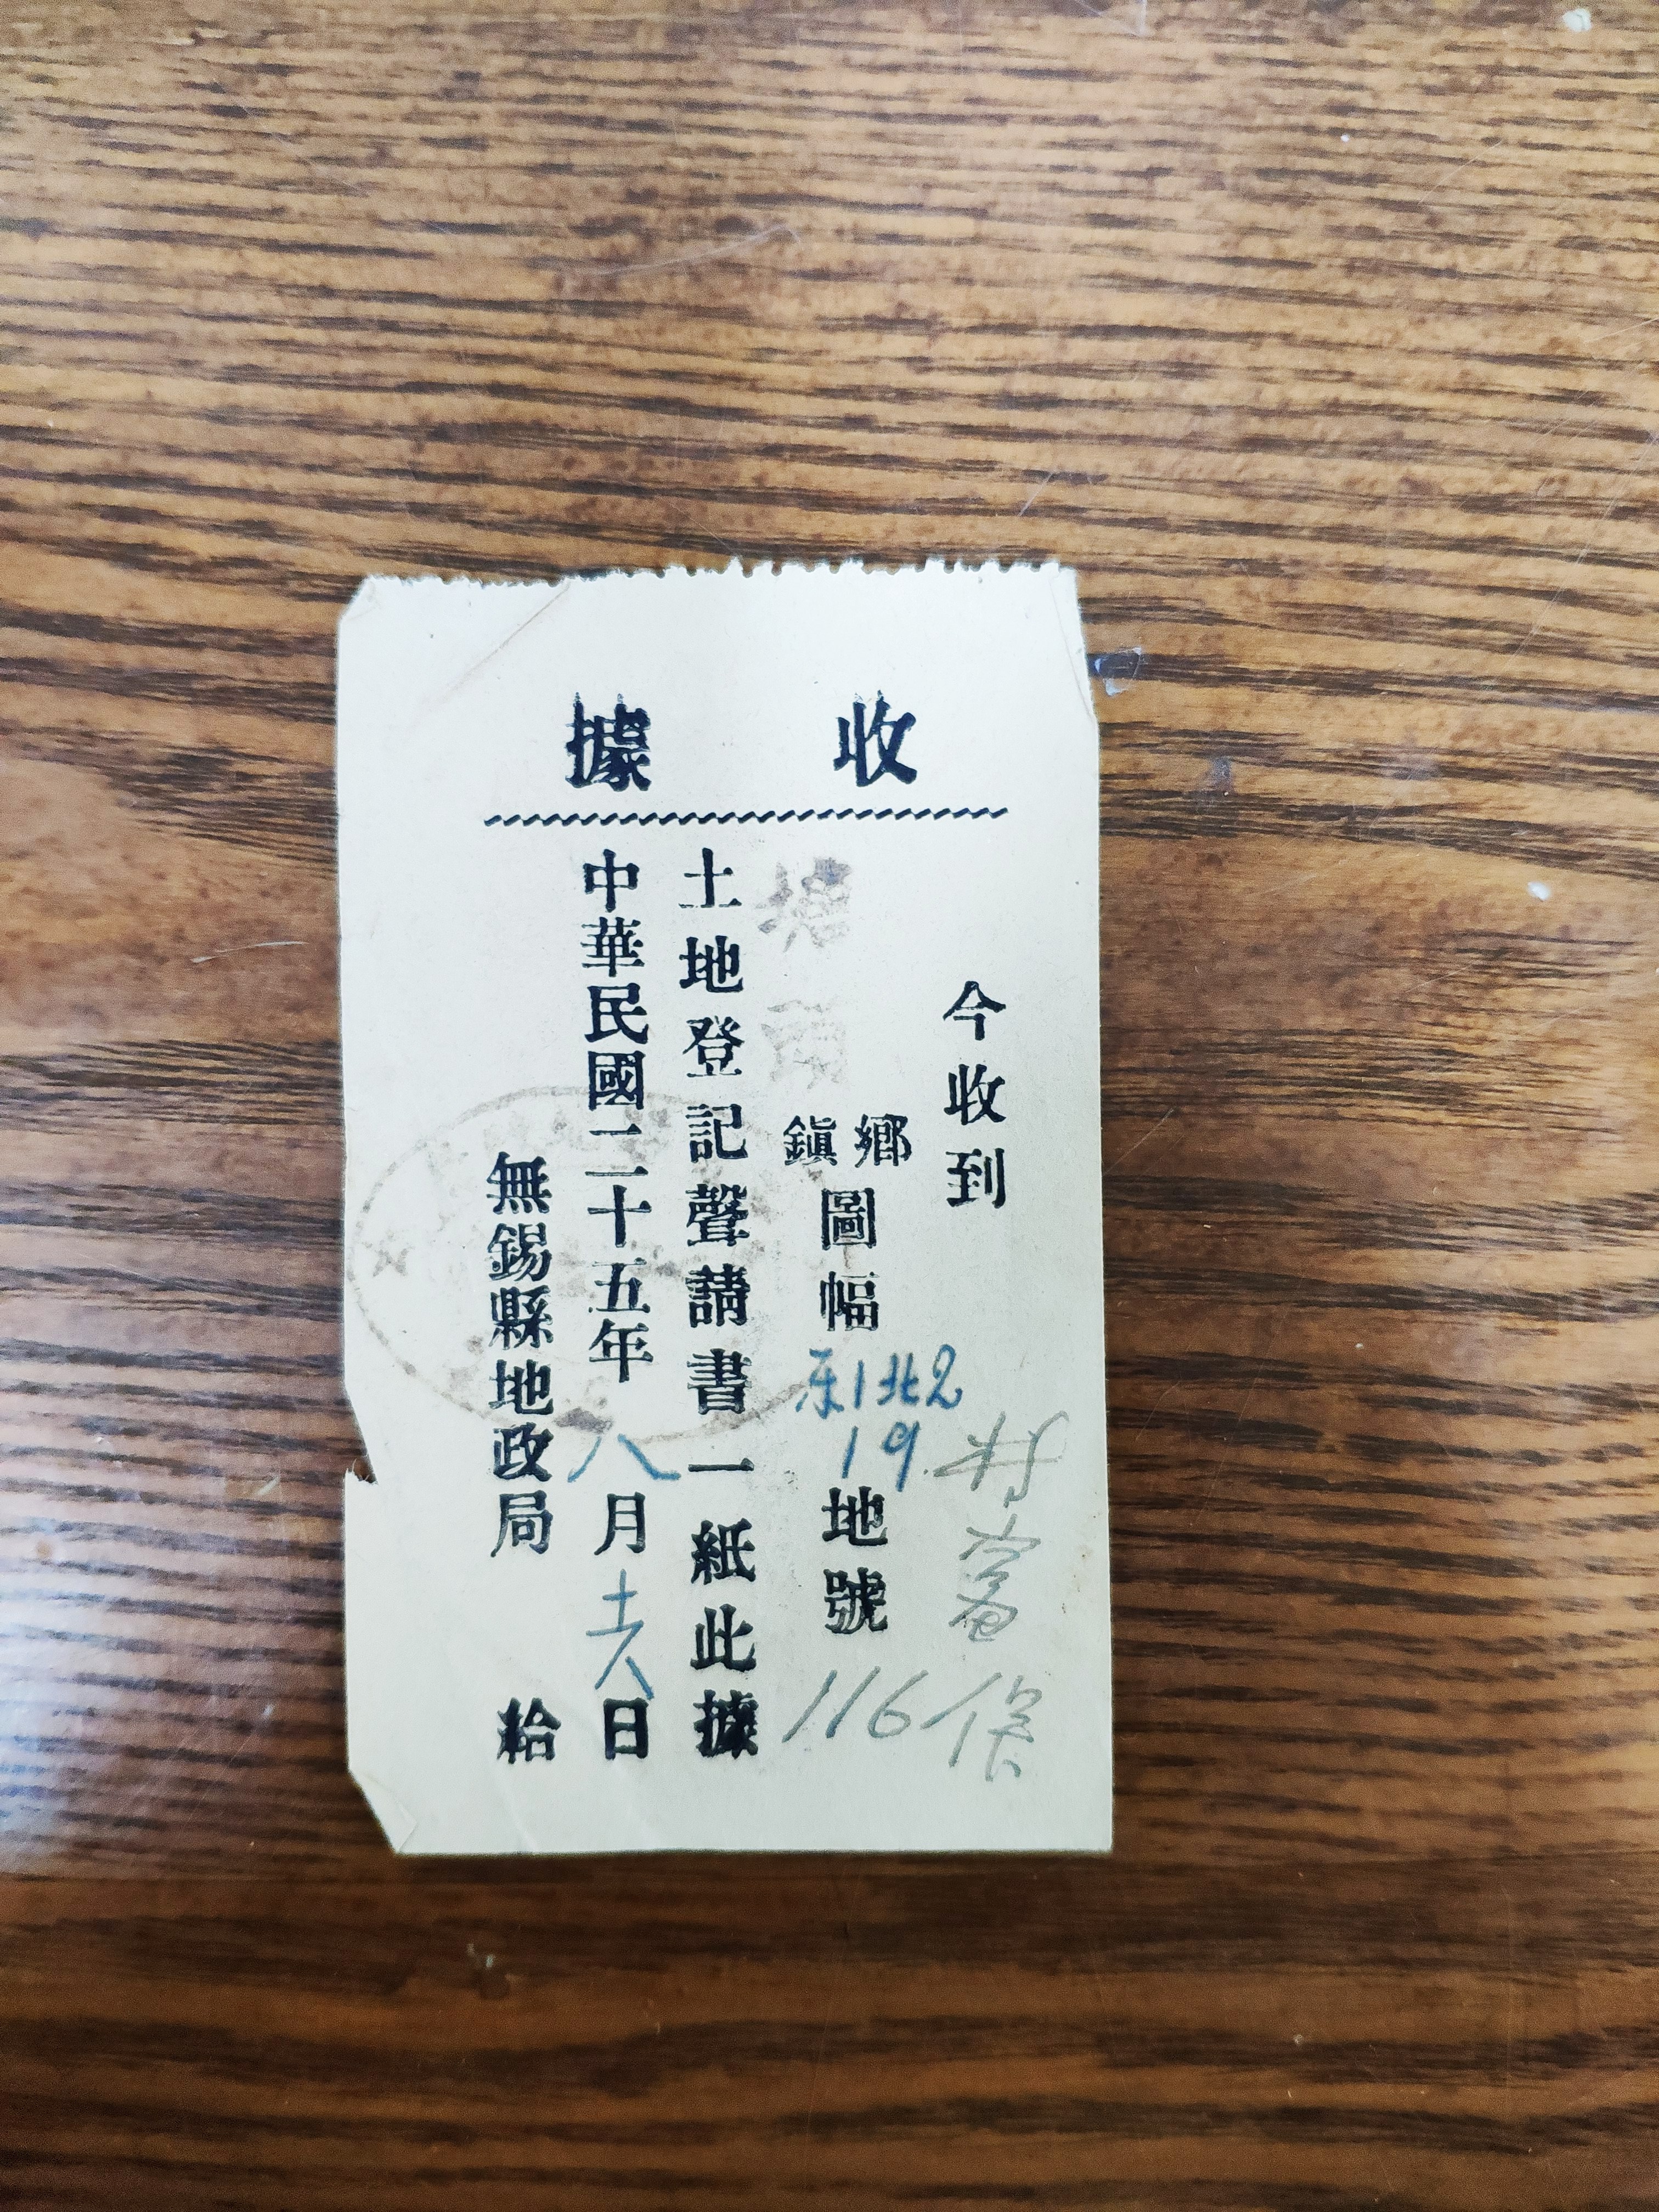 收據
今收到
鄉鎮圖幅東1北2 19地號116
土地登記聲請書一紙此據
中華民國二十五年八月十六日
無錫縣地政局給